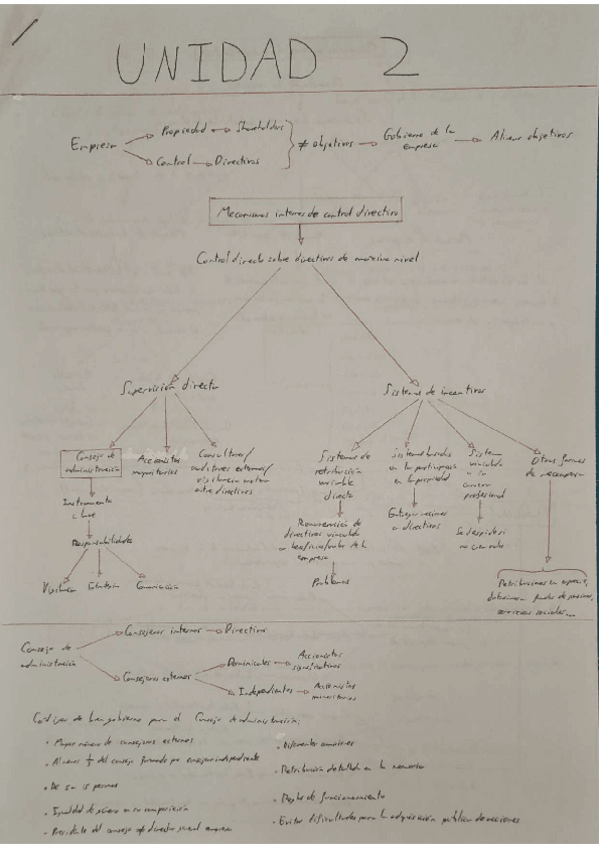 UNIDAD 2
Empresa
Propiedad → Shareholders
Control → Directivos
≠ Objetivos → Gobierno de la empresa → Alinear objetivos
Mecanismos internos de control directivo
Control directo sobre directivos de máximo nivel
Supervisión directa
Sistema de incentivos
Consejo de administración
Accionistas mayoritarios
Consultores/
auditores externos/
entre directivos
Sistemas de
retribución
variable
directa
en la participación
en la propiedad
Sistema
vinculado
a la
carrera
profesional
Otras formas
de recompensa
Instrumento
clave
Responsabilidades
Vigilancia
Estrategia
Comunicación
Remuneración de
directivos vinculada
a beneficios de la
empresa
Problemas
Entregar acciones
a directivos
Retribuciones en especie,
fondos de pensiones,
servicios sociales...
Consejo de
administración
Consejeros internos → Directivos
Consejeros externos
Dominicales → Accionistas
significativos
Independientes → Accionistas
minoritarios
Código de buen gobierno para el Consejo de administración:
• Mayor número de consejeros externos
• Al menos del consejo formado por independiente
• De 5 a 15 personas
• Igualdad de género en su composición
• Presidente del consejo ≠ director empresa
• Diferentes comisiones
• Retribución detallada en la memoria
• Reglas de funcionamiento
• Evitar dificultades para la adquisición pública de acciones